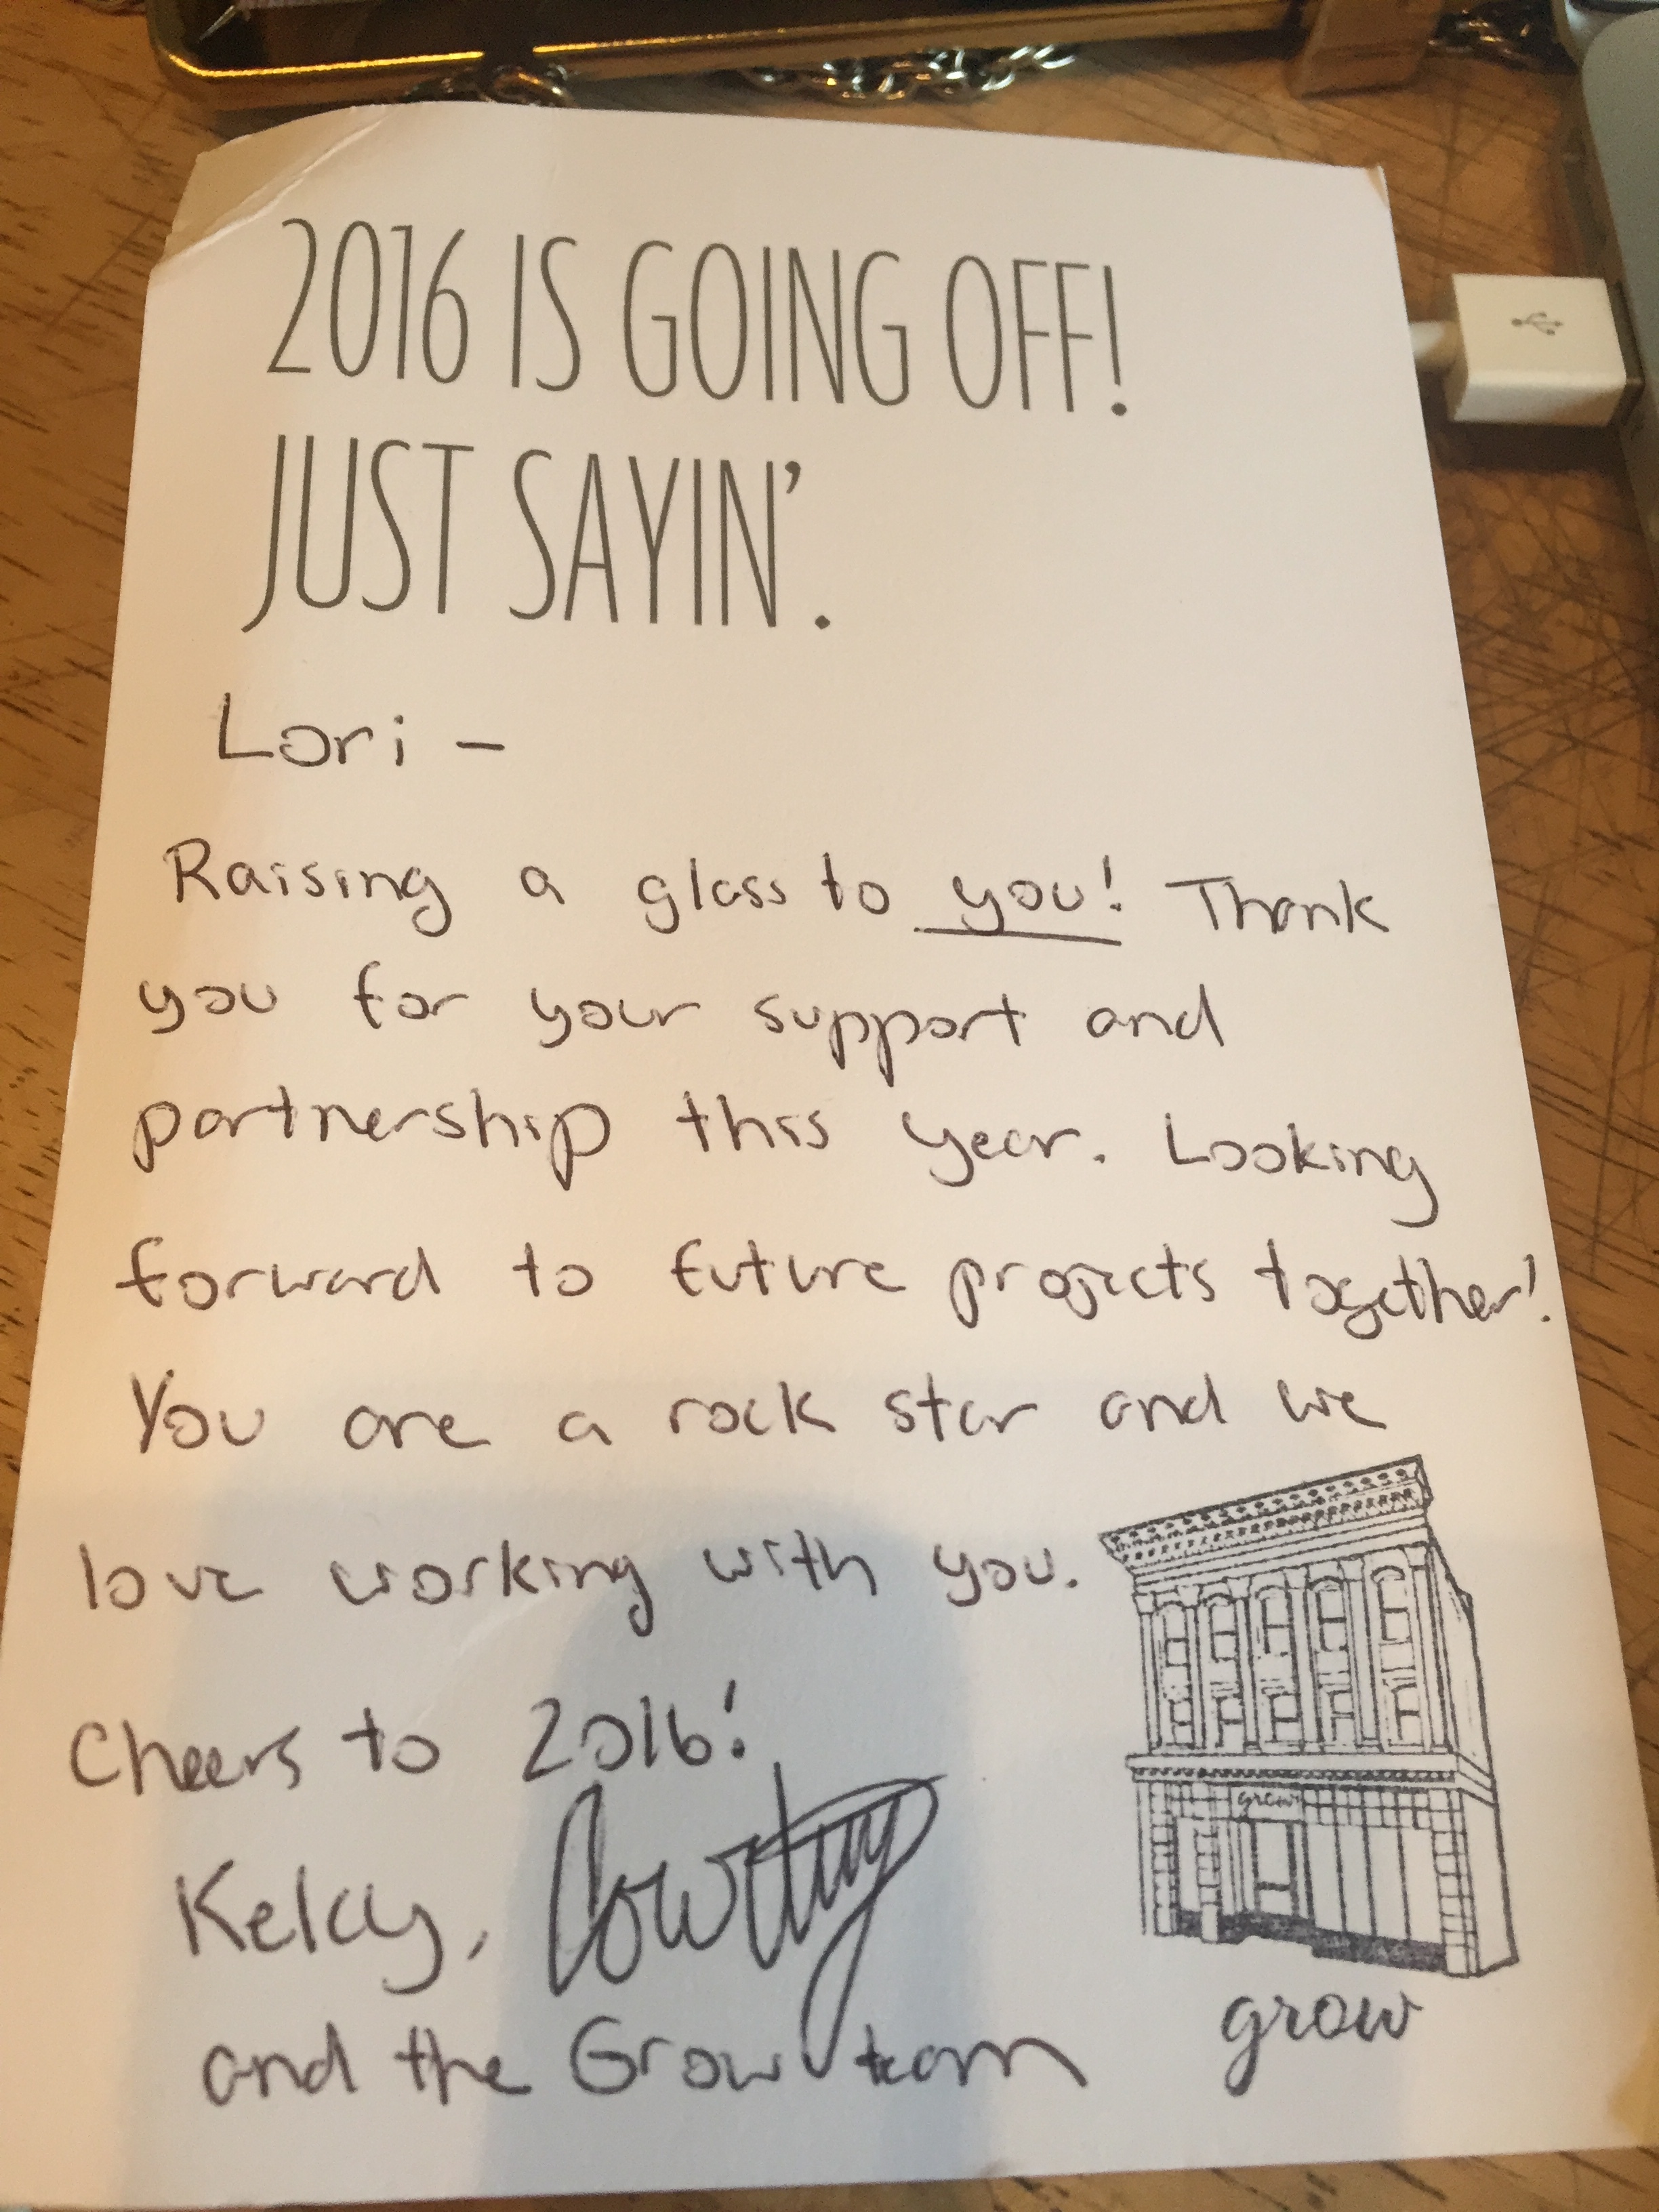 2016 IS GOING OFF!
JUST SAYIN'.
Lori –
Raising a glass to you! Thank
you for your support and
partnership this year. Looking
forward to future projects together!
You are a rock star and we
love working with you.
Cheers to 2016!
Kelcy, Courtney
and the Grow team
grow
grow